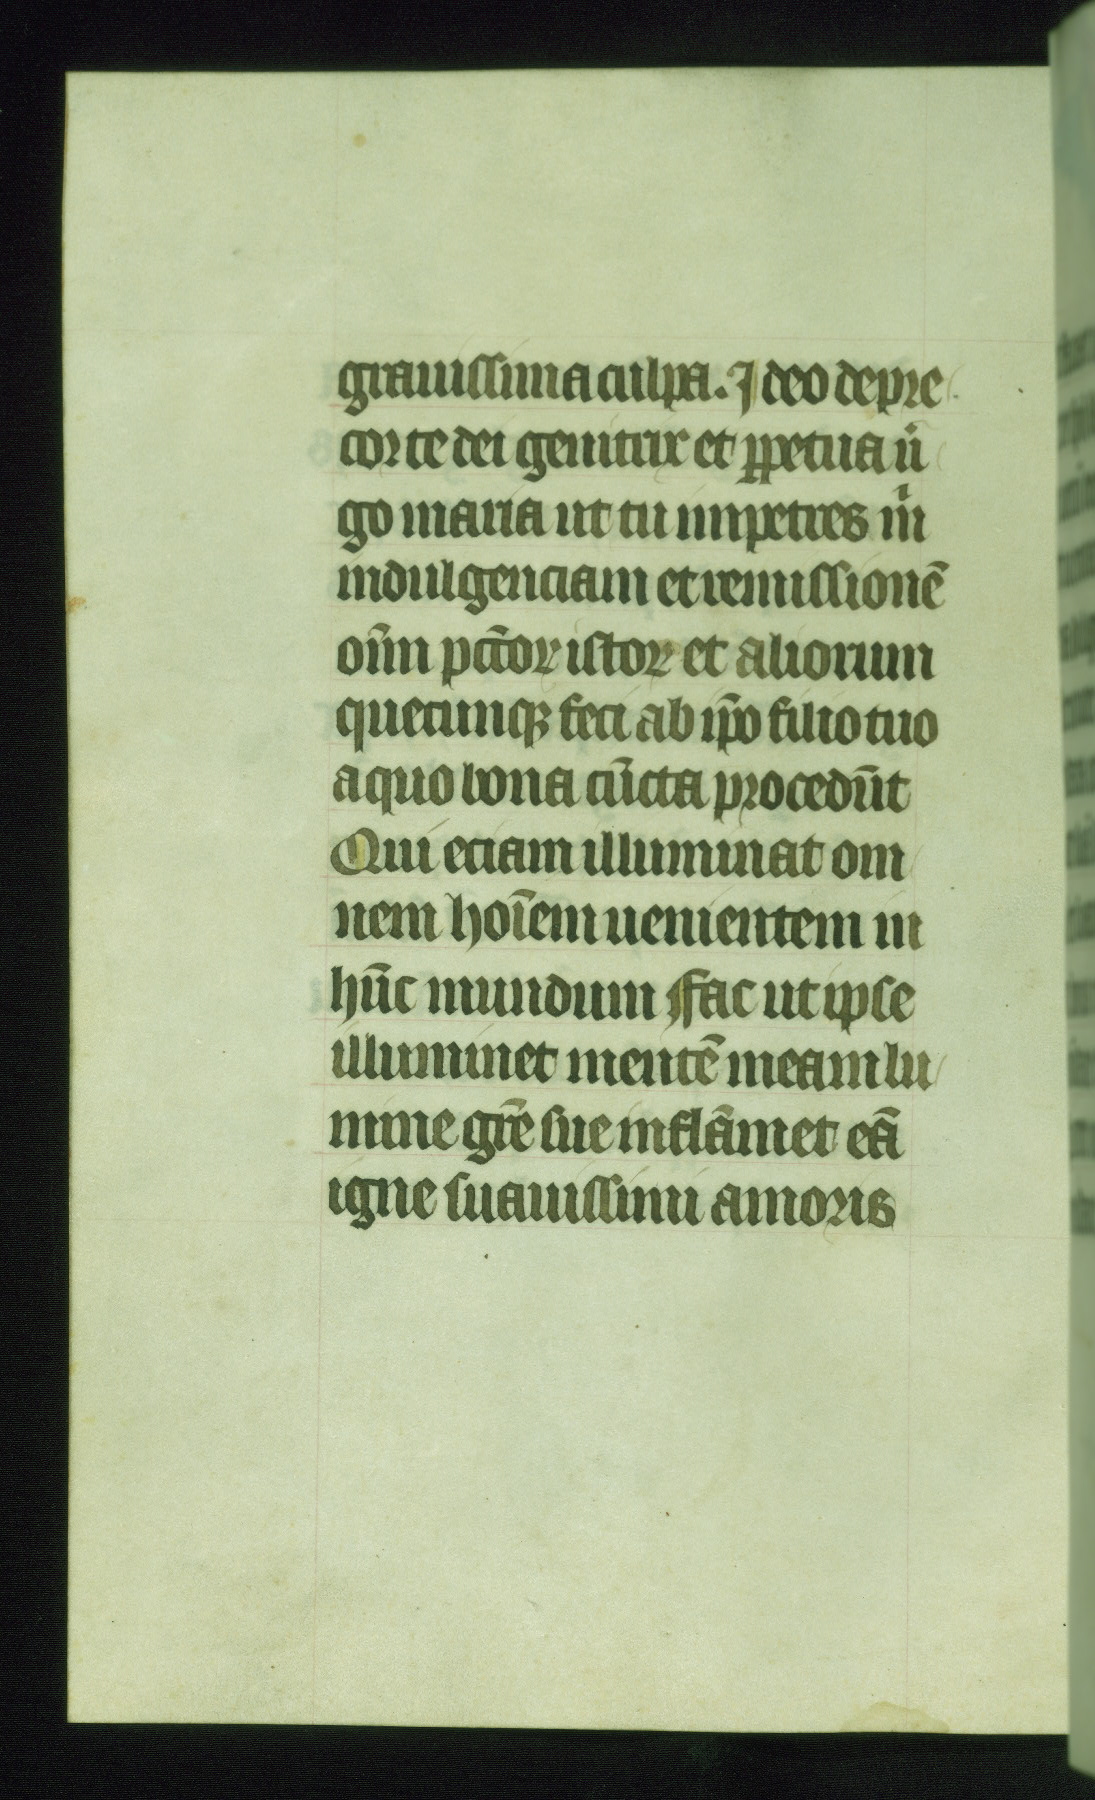 grauissima culpa. Ideo depre
cor te dei genitrix et ꝑpetua uͥ
go maria ut tu impetres mͥ
indulgenciam et remissionē
oīm pctōꝝ istoꝝ et aliorum
quecunqꝫ feci ab ip̄o filio tuo
a quo bona cūcta procedūt
Qui eciam illuminat om
nem hoīem uenientem in
hūc mundum ffac ut ipse
illuminet mentē meam lu
mine gr̄e sue inflāmet eā
igne suauissimi amoris